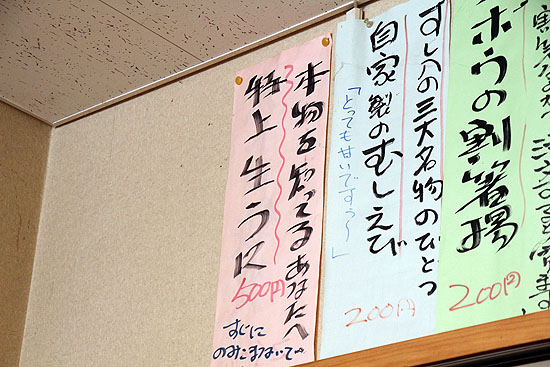 ボウの割箸揚
200円
すし八の三大名物のひとつ
自家製のむしえび
「とっても甘いですぅ〜」
200円
本物を知ってるあなたへ
特上生うに
500円
すぐに
のみこまないで…